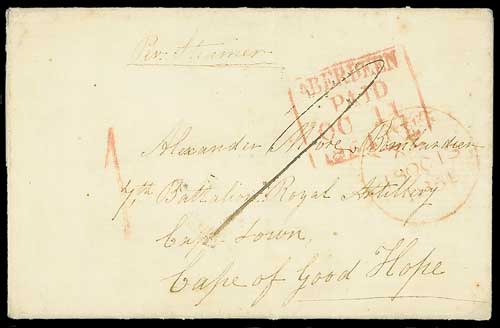 Per Steamer
ABERDEEN
PAID
OC 11
Alexander Moore Bombardier
7th Battalion Royal Artillery
Cape Town,
Cape of Good Hope